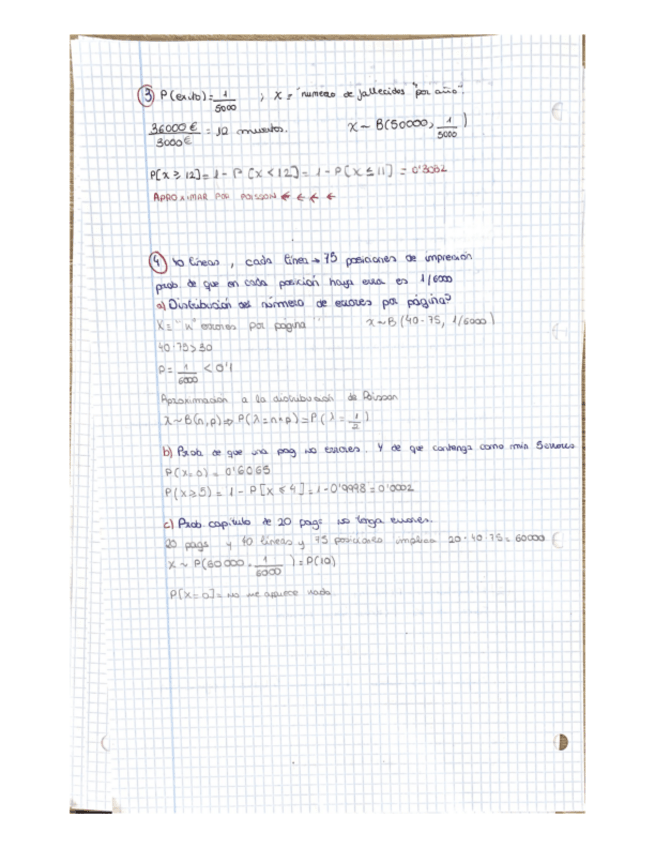 3 P(exito) = 1/5000 ; X = "numero de fallecidos "por año".
36000€/3000€ = 12 muertos. X ~ B(50000, 1/5000)
P[X ≥ 12] = 1 - P[X < 12] = 1 - P[X ≤ 11] = 0'3032
APROXIMAR POR POISSON ← ← ← ←
4 40 líneas, cada línea → 75 posiciones de impresión
prob. de que en cada posición haya error es 1/6000
a) Distribución del número de errores por página?
X = "nº errores por página" X ~ B(40·75, 1/6000)
40·75 > 30
P = 1/6000 < 0'1
Aproximación a la distribución de Poisson
X ~ B(n,p) ⇒ P(λ = n·p) = P(λ = 1/2)
b) Prob. de que una pag no errores. Y de que contenga como min 5 errores
P(X=0) = 0'6065
P(X≥5) = 1 - P[X ≤ 4] = 1 - 0'9998 = 0'0002
c) Prob. capitulo de 20 pags no tenga errores.
20 pags y 40 líneas y 75 posiciones implica 20·40·75 = 60000
X ~ P(60000 · 1/6000) = P(10)
P[X=0] = no me aparece nada